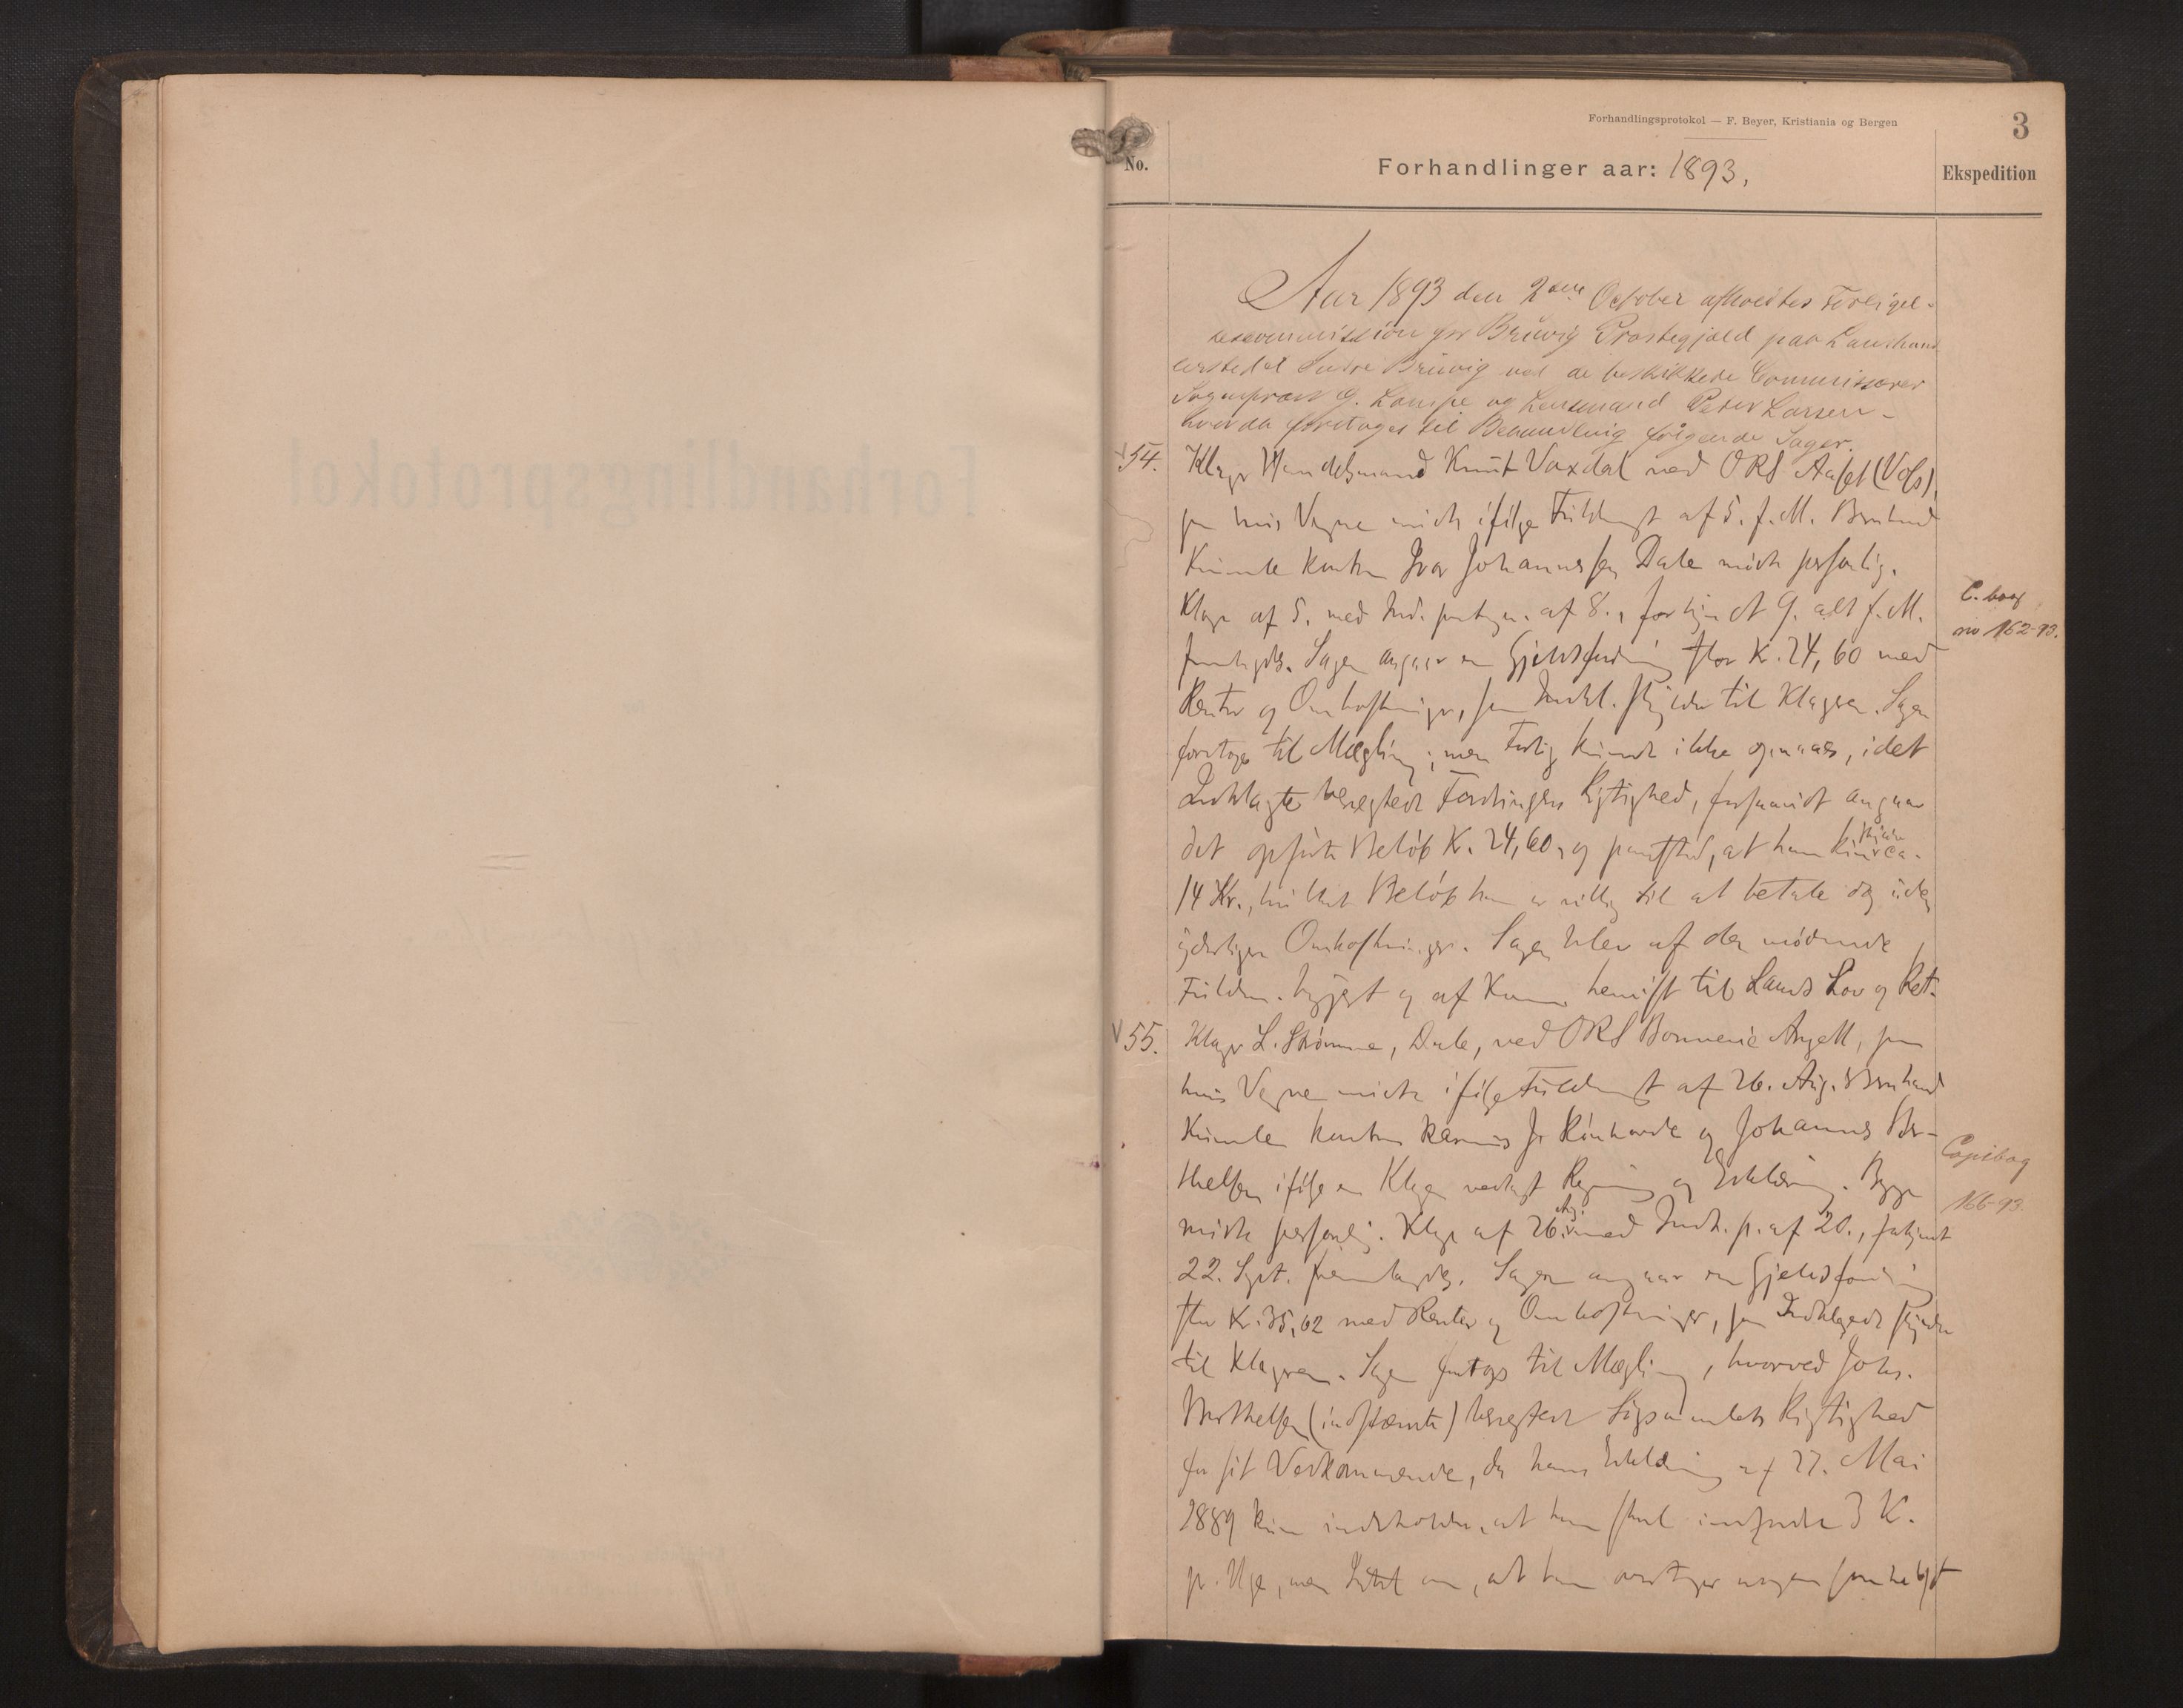 Forhandlingsprotokol
Forhandlingsprotokol — F. Beyer, Kristiania og Bergen
3
No.
Forhandlinger aar: 1893.
Ekspedition
Aar 1893 den 2den October afholdtes Forligel-
sescommission for Brüvig Præstegjæld paa Landhand
lerstedet Indre Brüvig ved de beskikkede Commissærer
Sognepræst G. Lampe og Lensmand Peder Larsen -
hvorda foretoges til Behandling følgende Sager.
54. Klager Handelsmand Knut Vaxdal ved ORS Aaset (Vols),
for hvis Vegne mødte ifølge Fuldmagt af 5. f. M. Bernhard
Kumle kontra Ivar Johannessen Dale mødte personlig.
Klage af 5. med Ind. paategn. af 8., forkynt 9. alt f. M.
fremlagdes. Sagen angaar en Gjeldsfordring stor Kr. 24,60 med
Renter og Omkostninger, som Indkl. skylder til Klageren. Sagen
foretoges til Mægling; men Forlig kunde ikke opnaaes, idet
Indklagte benegtede Fordringens Rigtighed, forsaavidt angaar
det opførte Beløb Kr. 24,60, og paastod, at han kun skylder ca.
14 Kr., hvilket Beløb han er villig til at betale dog uden
yderligere Omkostninger. Sagen blev af den mødende
Fuldm. begjært og af Komm. henvist til Lands Lov og Ret.
C. bog
no 162-93.
55. Klager L. Strømme, Dale, ved ORS Bonnevie Angell, for
hvis Vegne mødte ifølge Fuldmagt af 26. Aug. Bernhard
Kumle kontra Rasmus J. og Johannes Ber-
thelsen ifølge en Klage vedlagt Regning og Erklæring. Begge
mødte personlig. Klage af 26. Aug. med Indk. p. af 20., forkynt
22. Sept. fremlagdes. Sagen angaar en Gjeldsfordring
stor Kr. 35,62 med Renter og Omkostninger, som Indklagede skylder
til Klageren. Sagen foretoges til Mægling, hvorved Johs.
Berthelsen (indstævnte) benegtede Søgsmaalets Rigtighed
for sit Vedkommende, da hans Erklæring af 27. Mai
1889 kun indeholder, at han skal indsende 3 K.
pr. Uge, men Intet om, at han overtager nogen somhelst
Copibog
166-93.